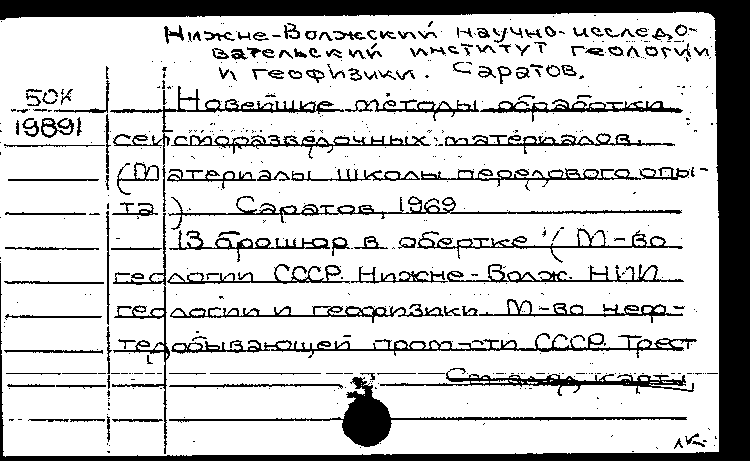 Нижне-Волжский научно-исследо-
вательский институт геологии
и геофизики. Саратов.
50К
19891
Новейшие методы обработки
сейсморазведочных материалов.
(Материалы школы передового опы-
та). Саратов, 1969
13 брошюр в обертке (М-во
геологии СССР. Нижне-Волж. НИИ
геологии и геофизики. М-во неф-
тедобывающей пром-сти СССР. Трест
См. след. карты